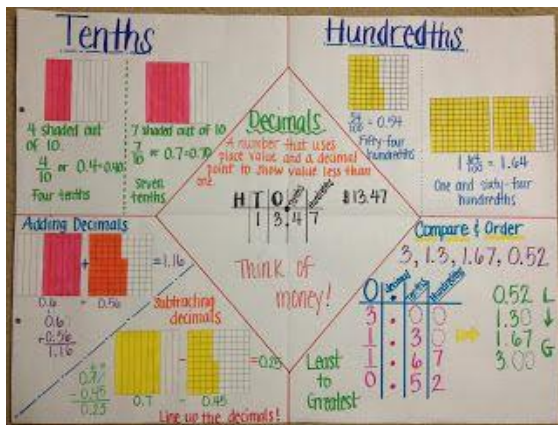 Tenths
4 shaded out
of 10.
4/10 or 0.4=0.40
Four tenths
7 shaded out of 10
7/10 or 0.7=0.70
Seven
tenths
Hundredths
54/100 = 0.54
Fifty-four
hundredths
1 64/100 = 1.64
One and sixty-four
hundredths
Decimals
A number that uses
place value and a decimal
point to show value less than
one.
H T O . tenths hundredths
1 3 . 4 7
$13.47
Think of
money!
Adding Decimals
+ = 1.16
0.6 + 0.56
0.6
+0.56
1.16
Subtracting
decimals
- = 0.25
0.7 - 0.45
-0.45
0.25
Line up the decimals!
Compare & Order
3, 1.3, 1.67, 0.52
O decimal tenths hundredths
3 . 0 0
1 . 3 0
1 . 6 7
0 . 5 2
Least
to
Greatest
0.52 L
1.30 ↓
1.67
3.00 G